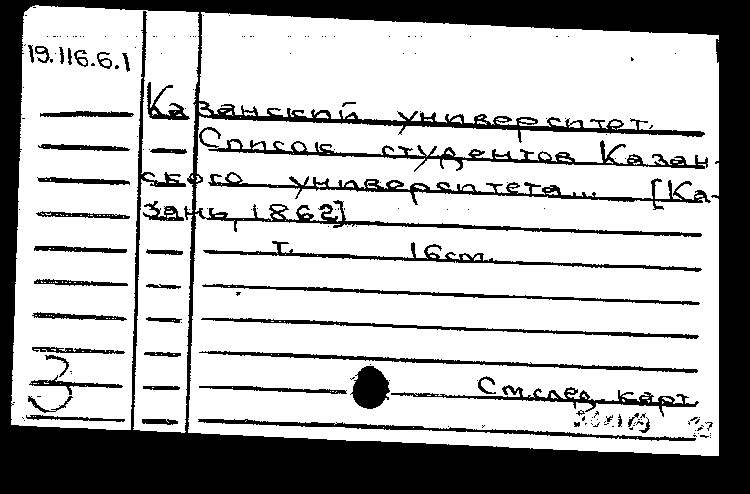 19.116.6.1
Казанский университет.
Список студентов Казан-
ского университета... [Ка-
зань, 1862]
т. 16 cm.
3
См. след. карт.